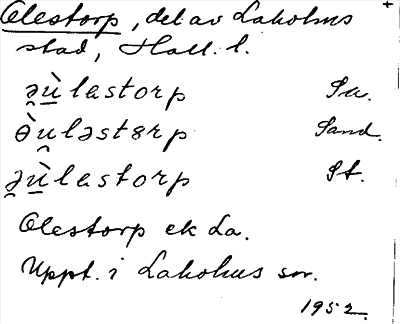 Olestorp, del av Laholms +
stad, Hall. l.
ə̯ù̲lastorp Su.
ə̀u̯ləstɵrp Sand.
ə̯ù̲lastorp St.
Olestorp ek La.
Uppt. i Laholms sn.
1952.